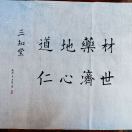 道地藥材
仁心濟世
三和堂